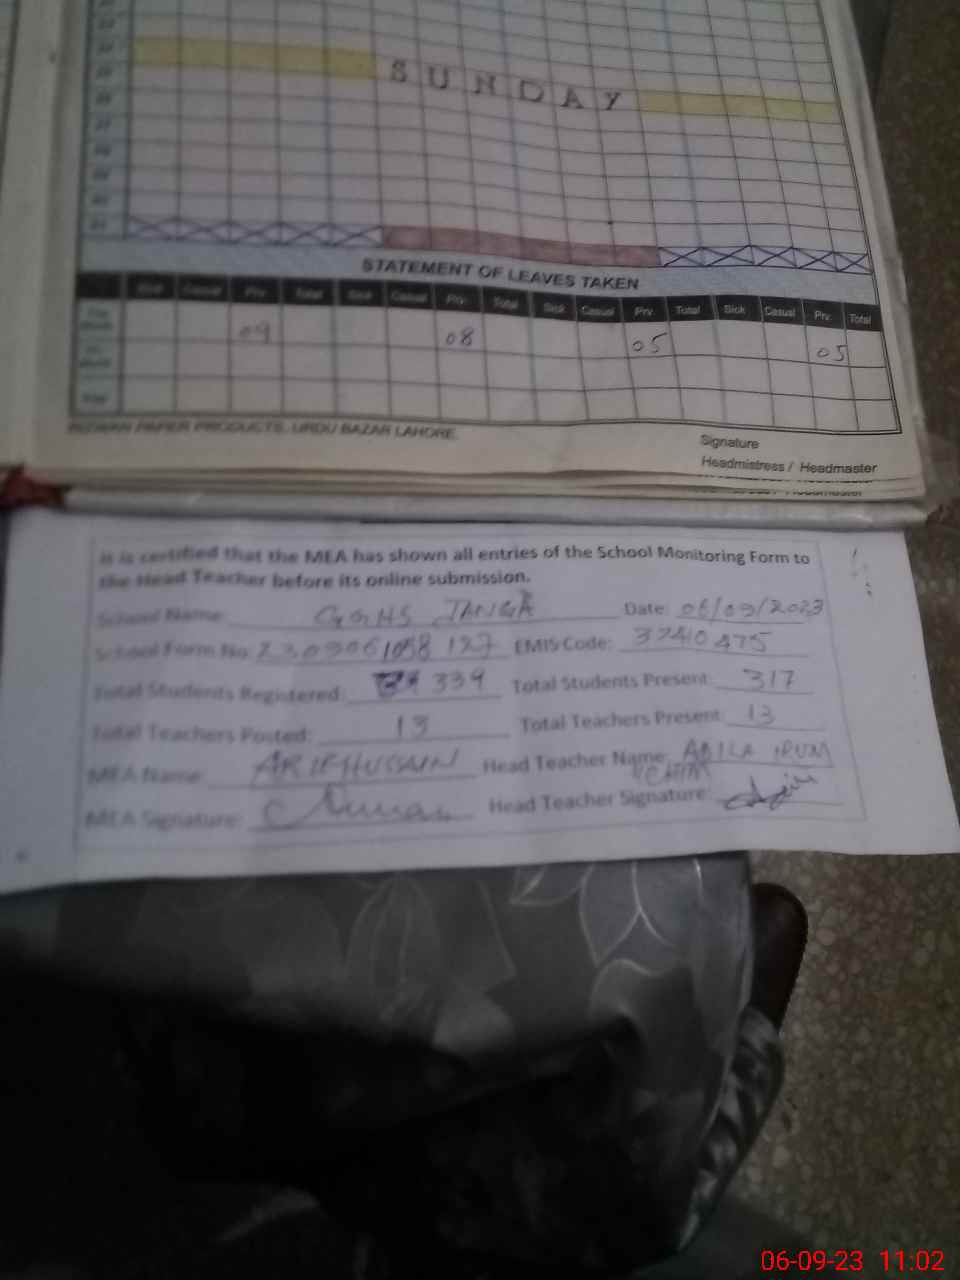 SUNDAY
STATEMENT OF LEAVES TAKEN
Sick Casual Prv. Total Sick Casual Prv. Total Sick Casual Prv. Total Sick Casual Prv. Total
09 08 05 05
Total
PAPER PRODUCTS, URDU BAZAR LAHORE.
Signature
Headmistress / Headmaster
It is certified that the MEA has shown all entries of the School Monitoring Form to
the Head Teacher before its online submission.
School Name: JANGA Date: 06/09/2023
School Form No: EMIS Code: 37410475
Total Students Registered: 339 Total Students Present: 317
Total Teachers Posted: 13 Total Teachers Present: 13
MEA Name: ARIF HUSSAIN Head Teacher Name: IRUM
MEA Signature: Head Teacher Signature:
06-09-23 11:02